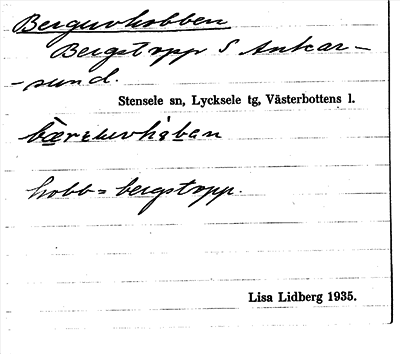 Berguvkobben
Bergstopp S Ankar-
-sund.
Stensele sn, Lycksele tg, Västerbottens l.
kobb = bergstopp.
Lisa Lidberg 1935.